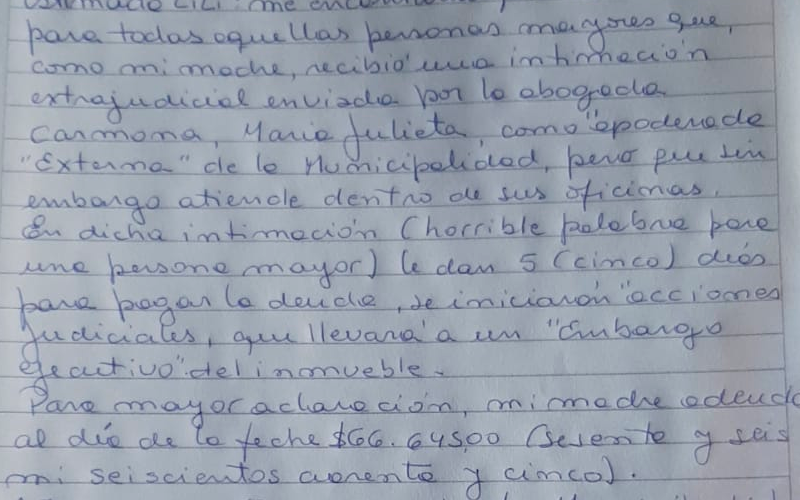 para todas aquellas personas mayores que,
como mi madre, recibió una intimación
extrajudicial enviada por la abogada
Carmona, Maria Julieta, como "apoderada
"Externa" de la Municipalidad, pero que sin
embargo atiende dentro de sus oficinas.
En dicha intimación (horrible palabra para
una persona mayor) le dan 5 (cinco) días
para pagar la deuda, se iniciarán "acciones
Judiciales, que llevará a un "Embargo
ejecutivo" del inmueble.
Para mayor aclaración, mi madre adeuda
al día de la fecha $66.645,00 (Sesenta y seis
mi seiscientos cuarenta y cinco).